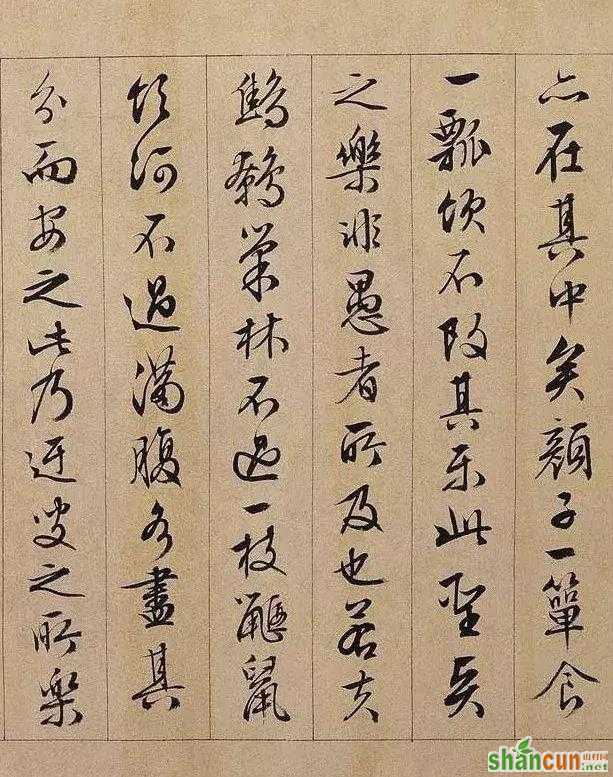 亦在其中矣顔子一簞食
一瓢飲不改其樂此聖賢
之樂非愚者所及也若夫
鷦鷯巢林不過一枝鼴鼠
飲河不過滿腹各盡其
分而安之此乃迂叟之所樂
shancun
山村网
.net